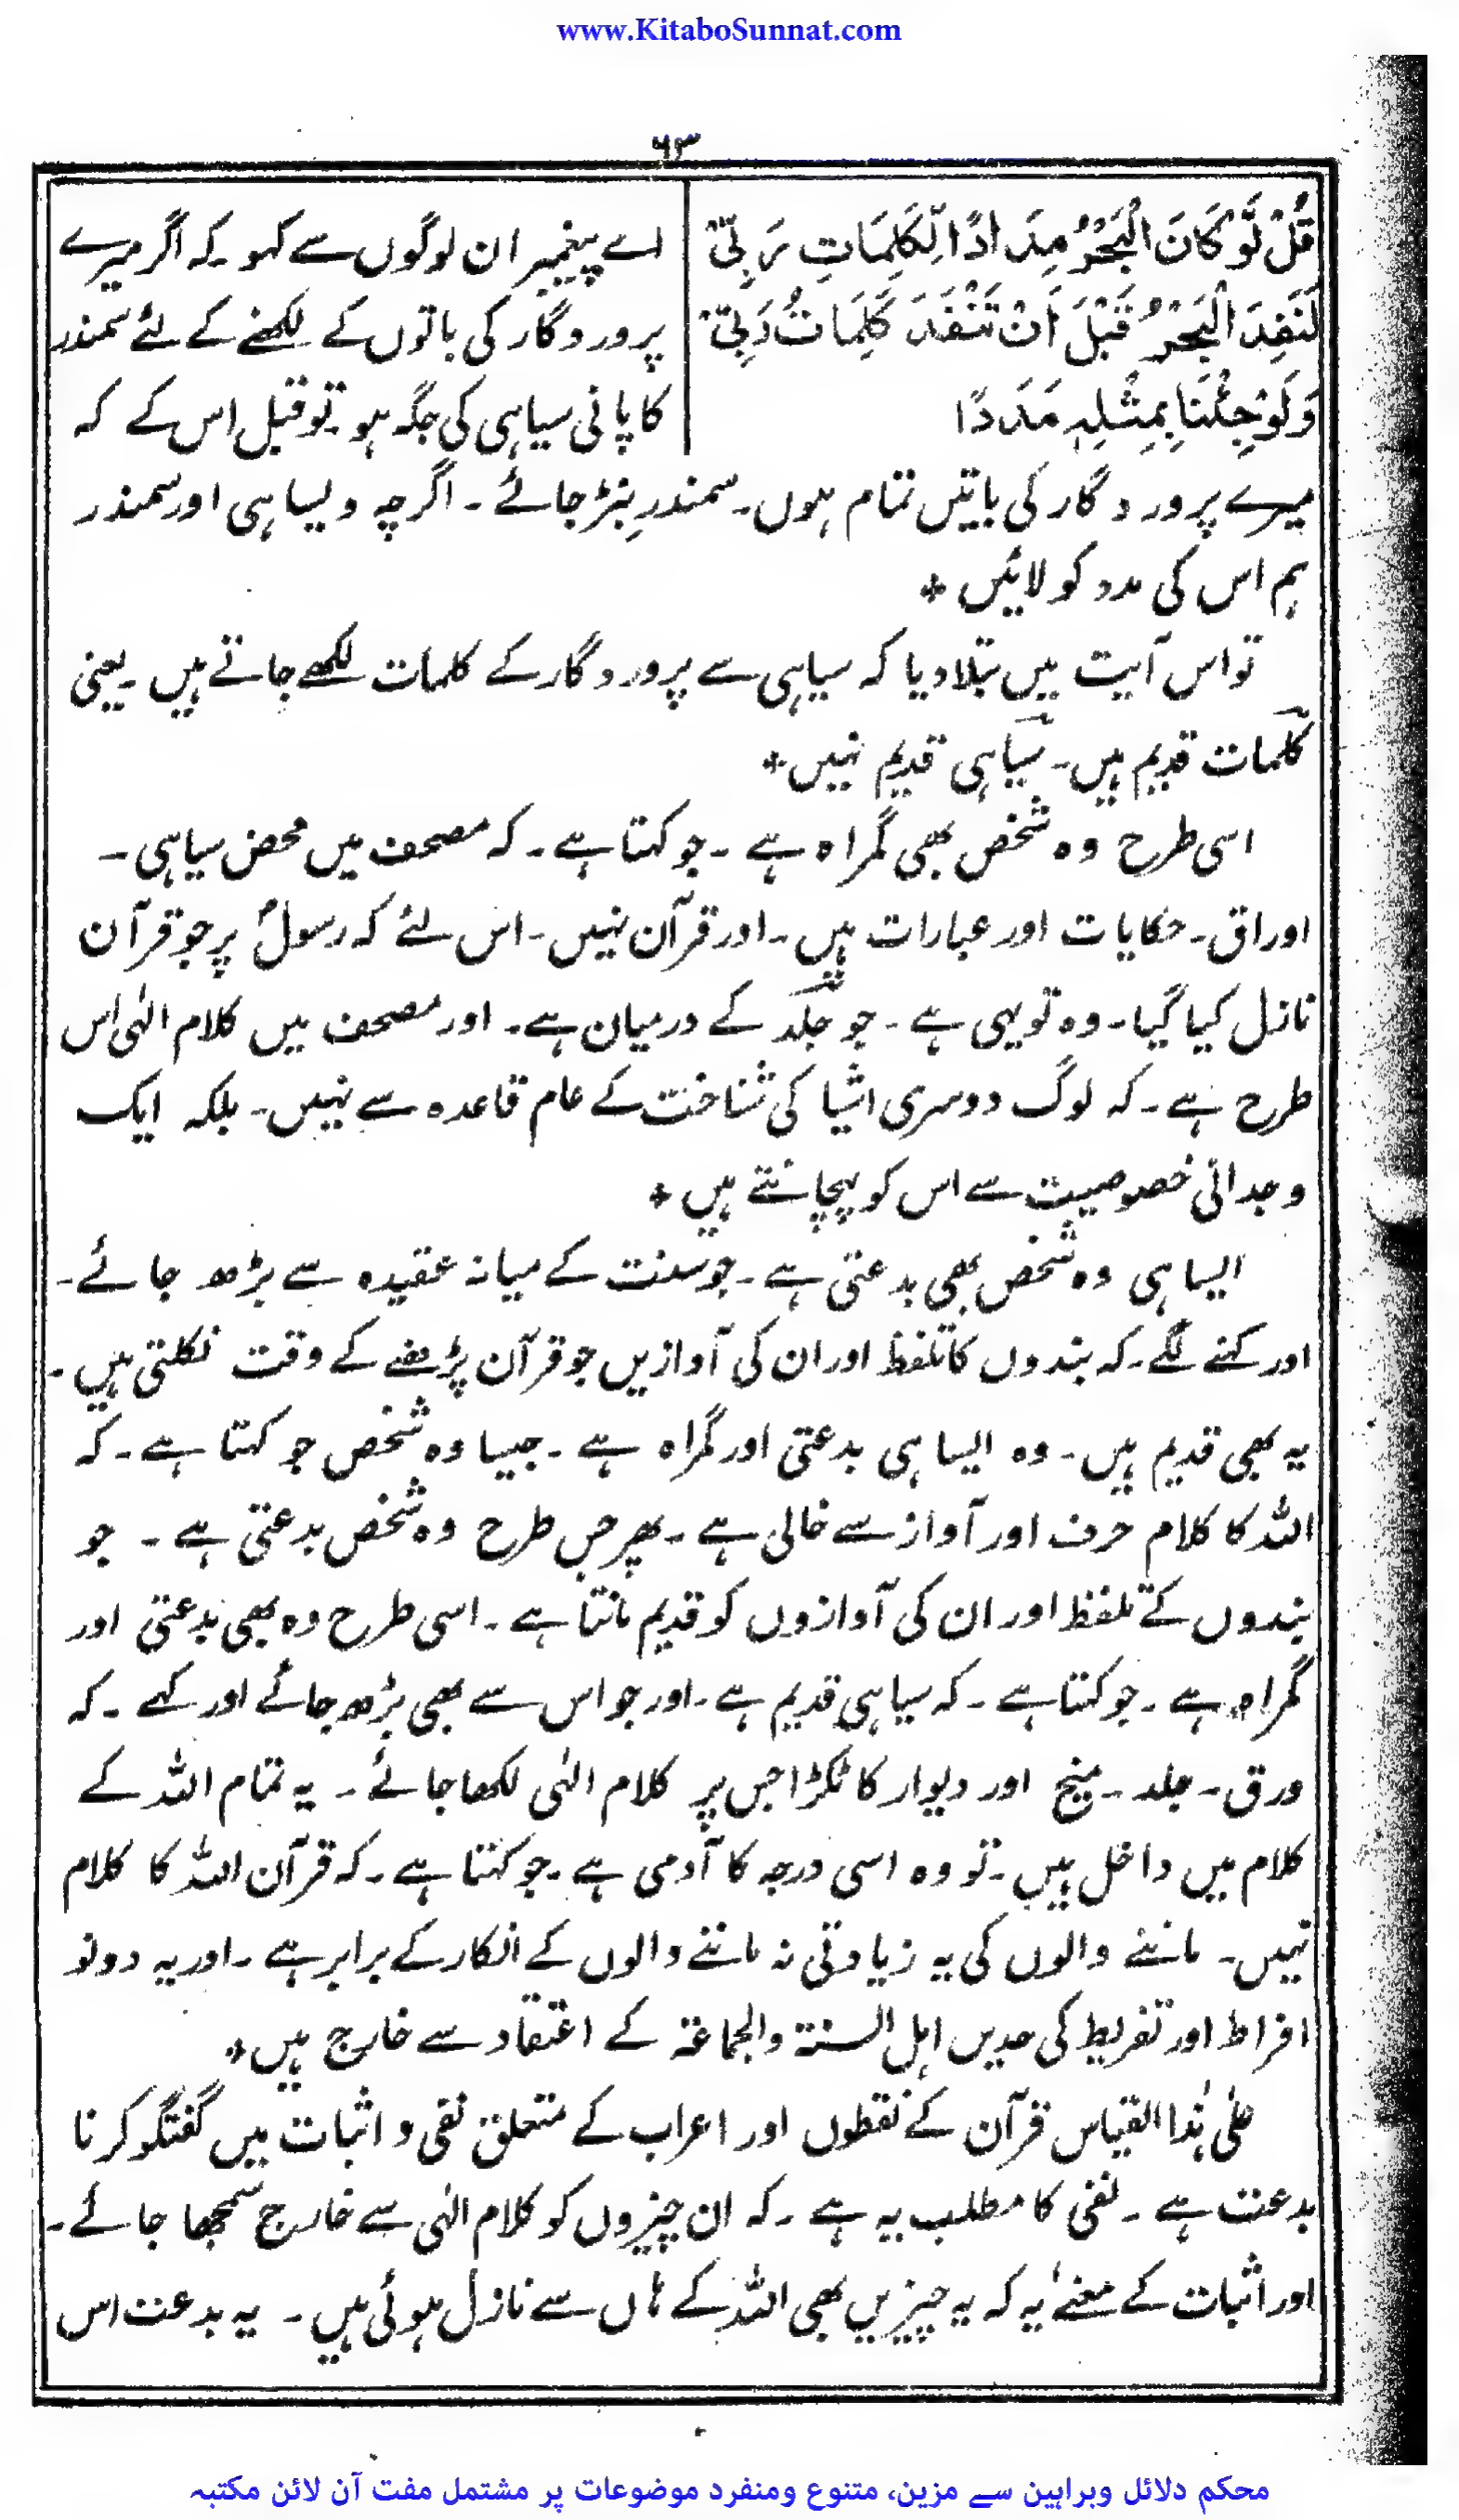 www.KitaboSunnat.com
۶۳
قُلْ لَّوْ كَانَ الْبَحْرُ مِدَادًا لِّكَلِمَاتِ رَبِّيْ
لَنَفِدَ الْبَحْرُ قَبْلَ اَنْ تَنْفَدَ كَلِمَاتُ رَبِّيْ
وَلَوْ جِئْنَا بِمِثْلِهٖ مَدَدًا
اے پیغمبر ان لوگوں سے کہو۔ کہ اگر میرے
پروردگار کی باتوں کے لکھنے کے لئے سمندر
کا پانی سیاہی کی جگہ ہو۔ تو قبل اس کے کہ
میرے پروردگار کی باتیں تمام ہوں۔ سمندر نبڑ جائے۔ اگرچہ ویسا ہی اور سمندر
ہم اس کی مدد کو لائیں +
تو اس آیت میں بتلا دیا کہ سیاہی سے پروردگار کے کلمات لکھے جاتے ہیں۔ یعنی
کلمات قدیم ہیں۔ سیاہی قدیم نہیں+
اسی طرح وہ شخص بھی گمراہ ہے۔ جو کہتا ہے۔ کہ مصحف میں محض سیاہی۔
اوراق۔ حکایات اور عبارات ہیں۔ اور قرآن نہیں۔ اس لئے کہ رسولؐ پر جو قرآن
نازل کیا گیا۔ وہ تو یہی ہے۔ جو جلد کے درمیان ہے۔ اور مصحف میں کلام الٰہی اس
طرح ہے۔ کہ لوگ دوسری اشیا کی شناخت کے عام قاعدہ سے نہیں۔ بلکہ ایک
وجدانی خصوصیت سے اس کو پہچانتے ہیں +
ایسا ہی وہ شخص بھی بدعتی ہے۔ جو سنت کے میانہ عقیدہ سے بڑھ جائے۔
اور کہنے لگے۔ کہ بندوں کا تلفظ اور ان کی آوازیں جو قرآن پڑھنے کے وقت نکلتی ہیں۔
یہ بھی قدیم ہیں۔ وہ ایسا ہی بدعتی اور گمراہ ہے۔ جیسا وہ شخص جو کہتا ہے۔ کہ
اللہ کا کلام حرف اور آواز سے خالی ہے۔ پھر جس طرح وہ شخص بدعتی ہے۔ جو
بندوں کے تلفظ اور ان کی آوازوں کو قدیم مانتا ہے۔ اسی طرح وہ بھی بدعتی اور
گمراہ ہے۔ جو کہتا ہے۔ کہ سیاہی قدیم ہے۔ اور جو اس سے بھی بڑھ جائے اور کہے۔ کہ
ورق۔ جلد۔ میخ اور دیوار کا ٹکڑا جس پر کلام الٰہی لکھا جائے۔ یہ تمام اللہ کے
کلام میں داخل ہیں۔ تو وہ اسی درجہ کا آدمی ہے۔ جو کہتا ہے۔ کہ قرآن اللہ کا کلام
نہیں۔ ماننے والوں کی یہ زیادتی نہ ماننے والوں کے انکار کے برابر ہے۔ اور یہ دونو
افراط اور تفریط کی حدیں اہل السنۃ والجماعۃ کے اعتقاد سے خارج ہیں+
علیٰ ہٰذا القیاس قرآن کے نقطوں اور اعراب کے متعلق نفی و اثبات میں گفتگو کرنا
بدعت ہے۔ نفی کا مطلب یہ ہے۔ کہ ان چیزوں کو کلام الٰہی سے خارج سمجھا جائے۔
اور اثبات کے معنےٰ یہ کہ یہ چیزیں بھی اللہ کے ہاں سے نازل ہوئی ہیں۔ یہ بدعت اس
محکم دلائل وبراہین سے مزین، متنوع ومنفرد موضوعات پر مشتمل مفت آن لائن مکتبہ